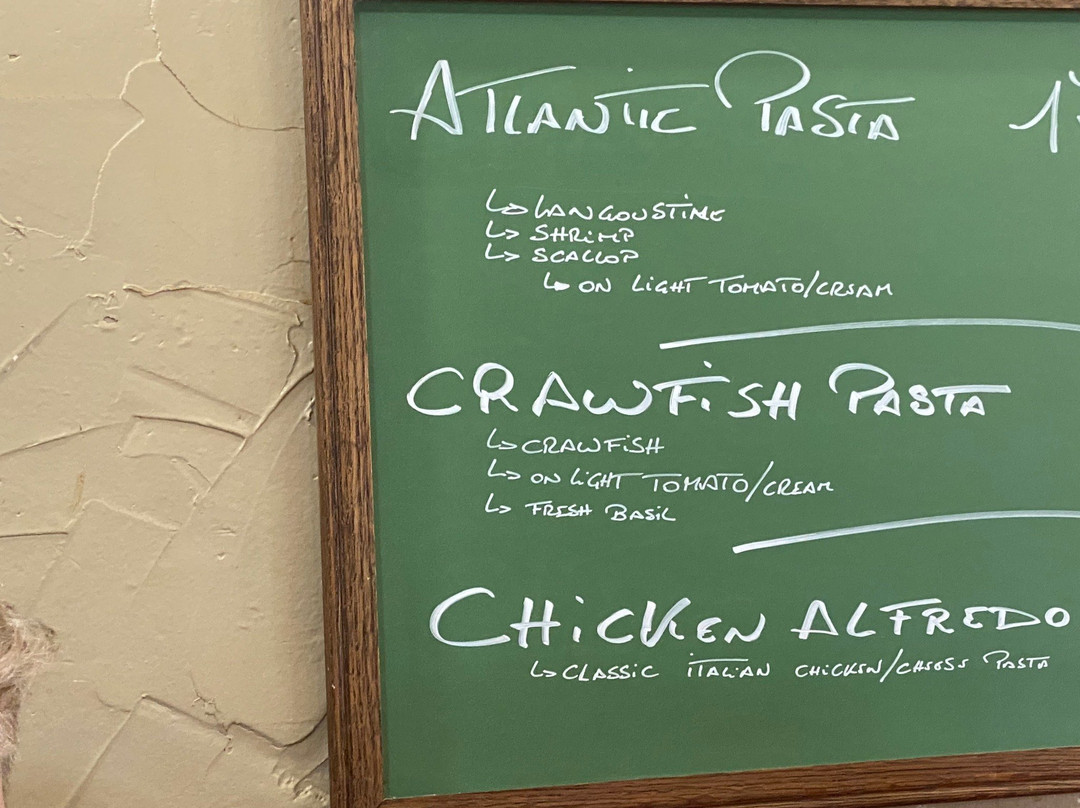 ATLANTIC PASTA
↳ LANGOUSTINE
↳ SHRIMP
↳ SCALLOP
↳ ON LIGHT TOMATO/CREAM
CRAWFISH PASTA
↳ CRAWFISH
↳ ON LIGHT TOMATO/CREAM
↳ FRESH BASIL
CHICKEN ALFREDO
↳ CLASSIC ITALIAN CHICKEN/CHEESE PASTA